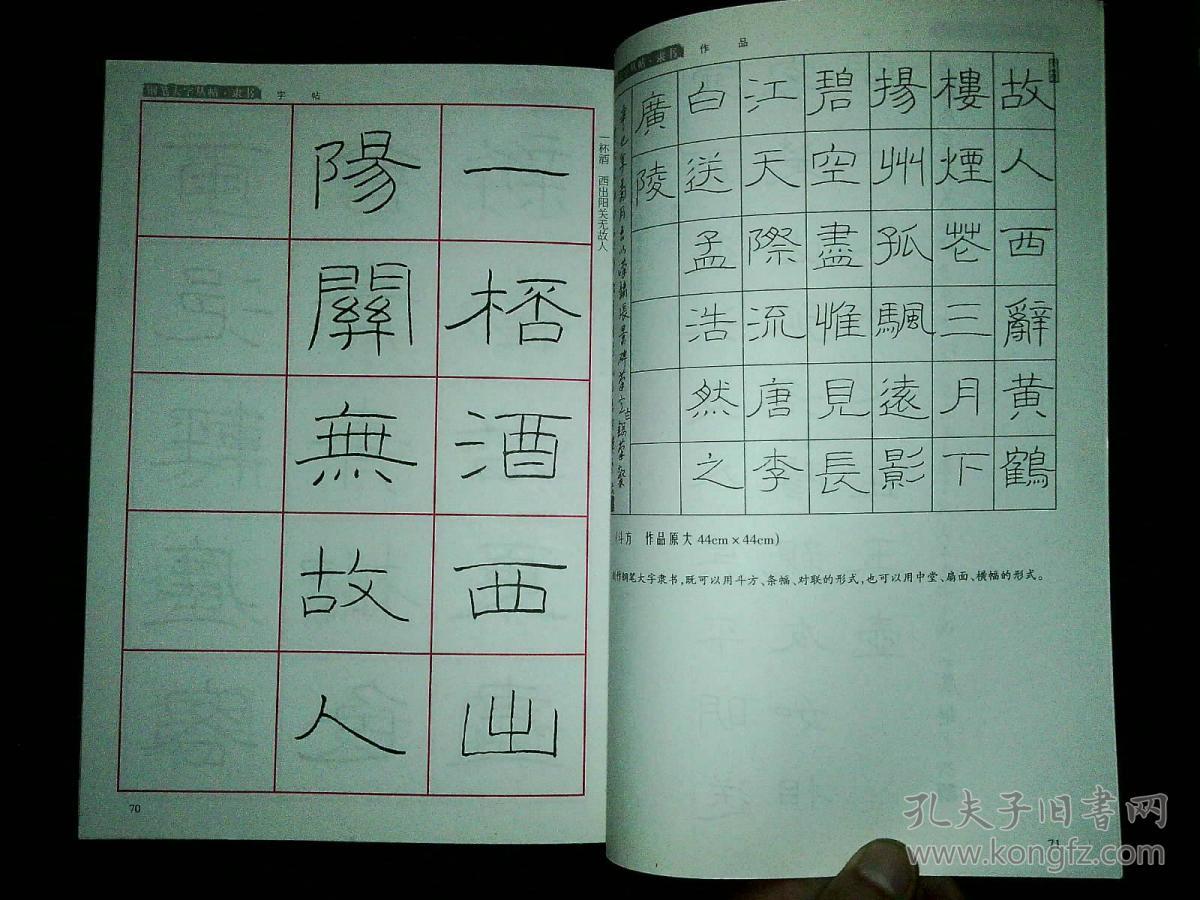 钢笔大字丛帖·隶书 字 帖
一桮酒西出
陽關無故人
一杯酒 西出阳关无故人
70
丛帖·隶书 作 品
故人西辭黄鶴
樓煙芲三月下
揚州孤颿遠影
碧空盡惟見長
江天際流唐李
白送孟浩然之
廣陵
(斗方 作品原大 44cm×44cm)
作钢笔大字隶书,既可以用斗方、条幅、对联的形式,也可以用中堂、扇面、横幅的形式。
71
孔夫子旧书网
www.kongfz.com